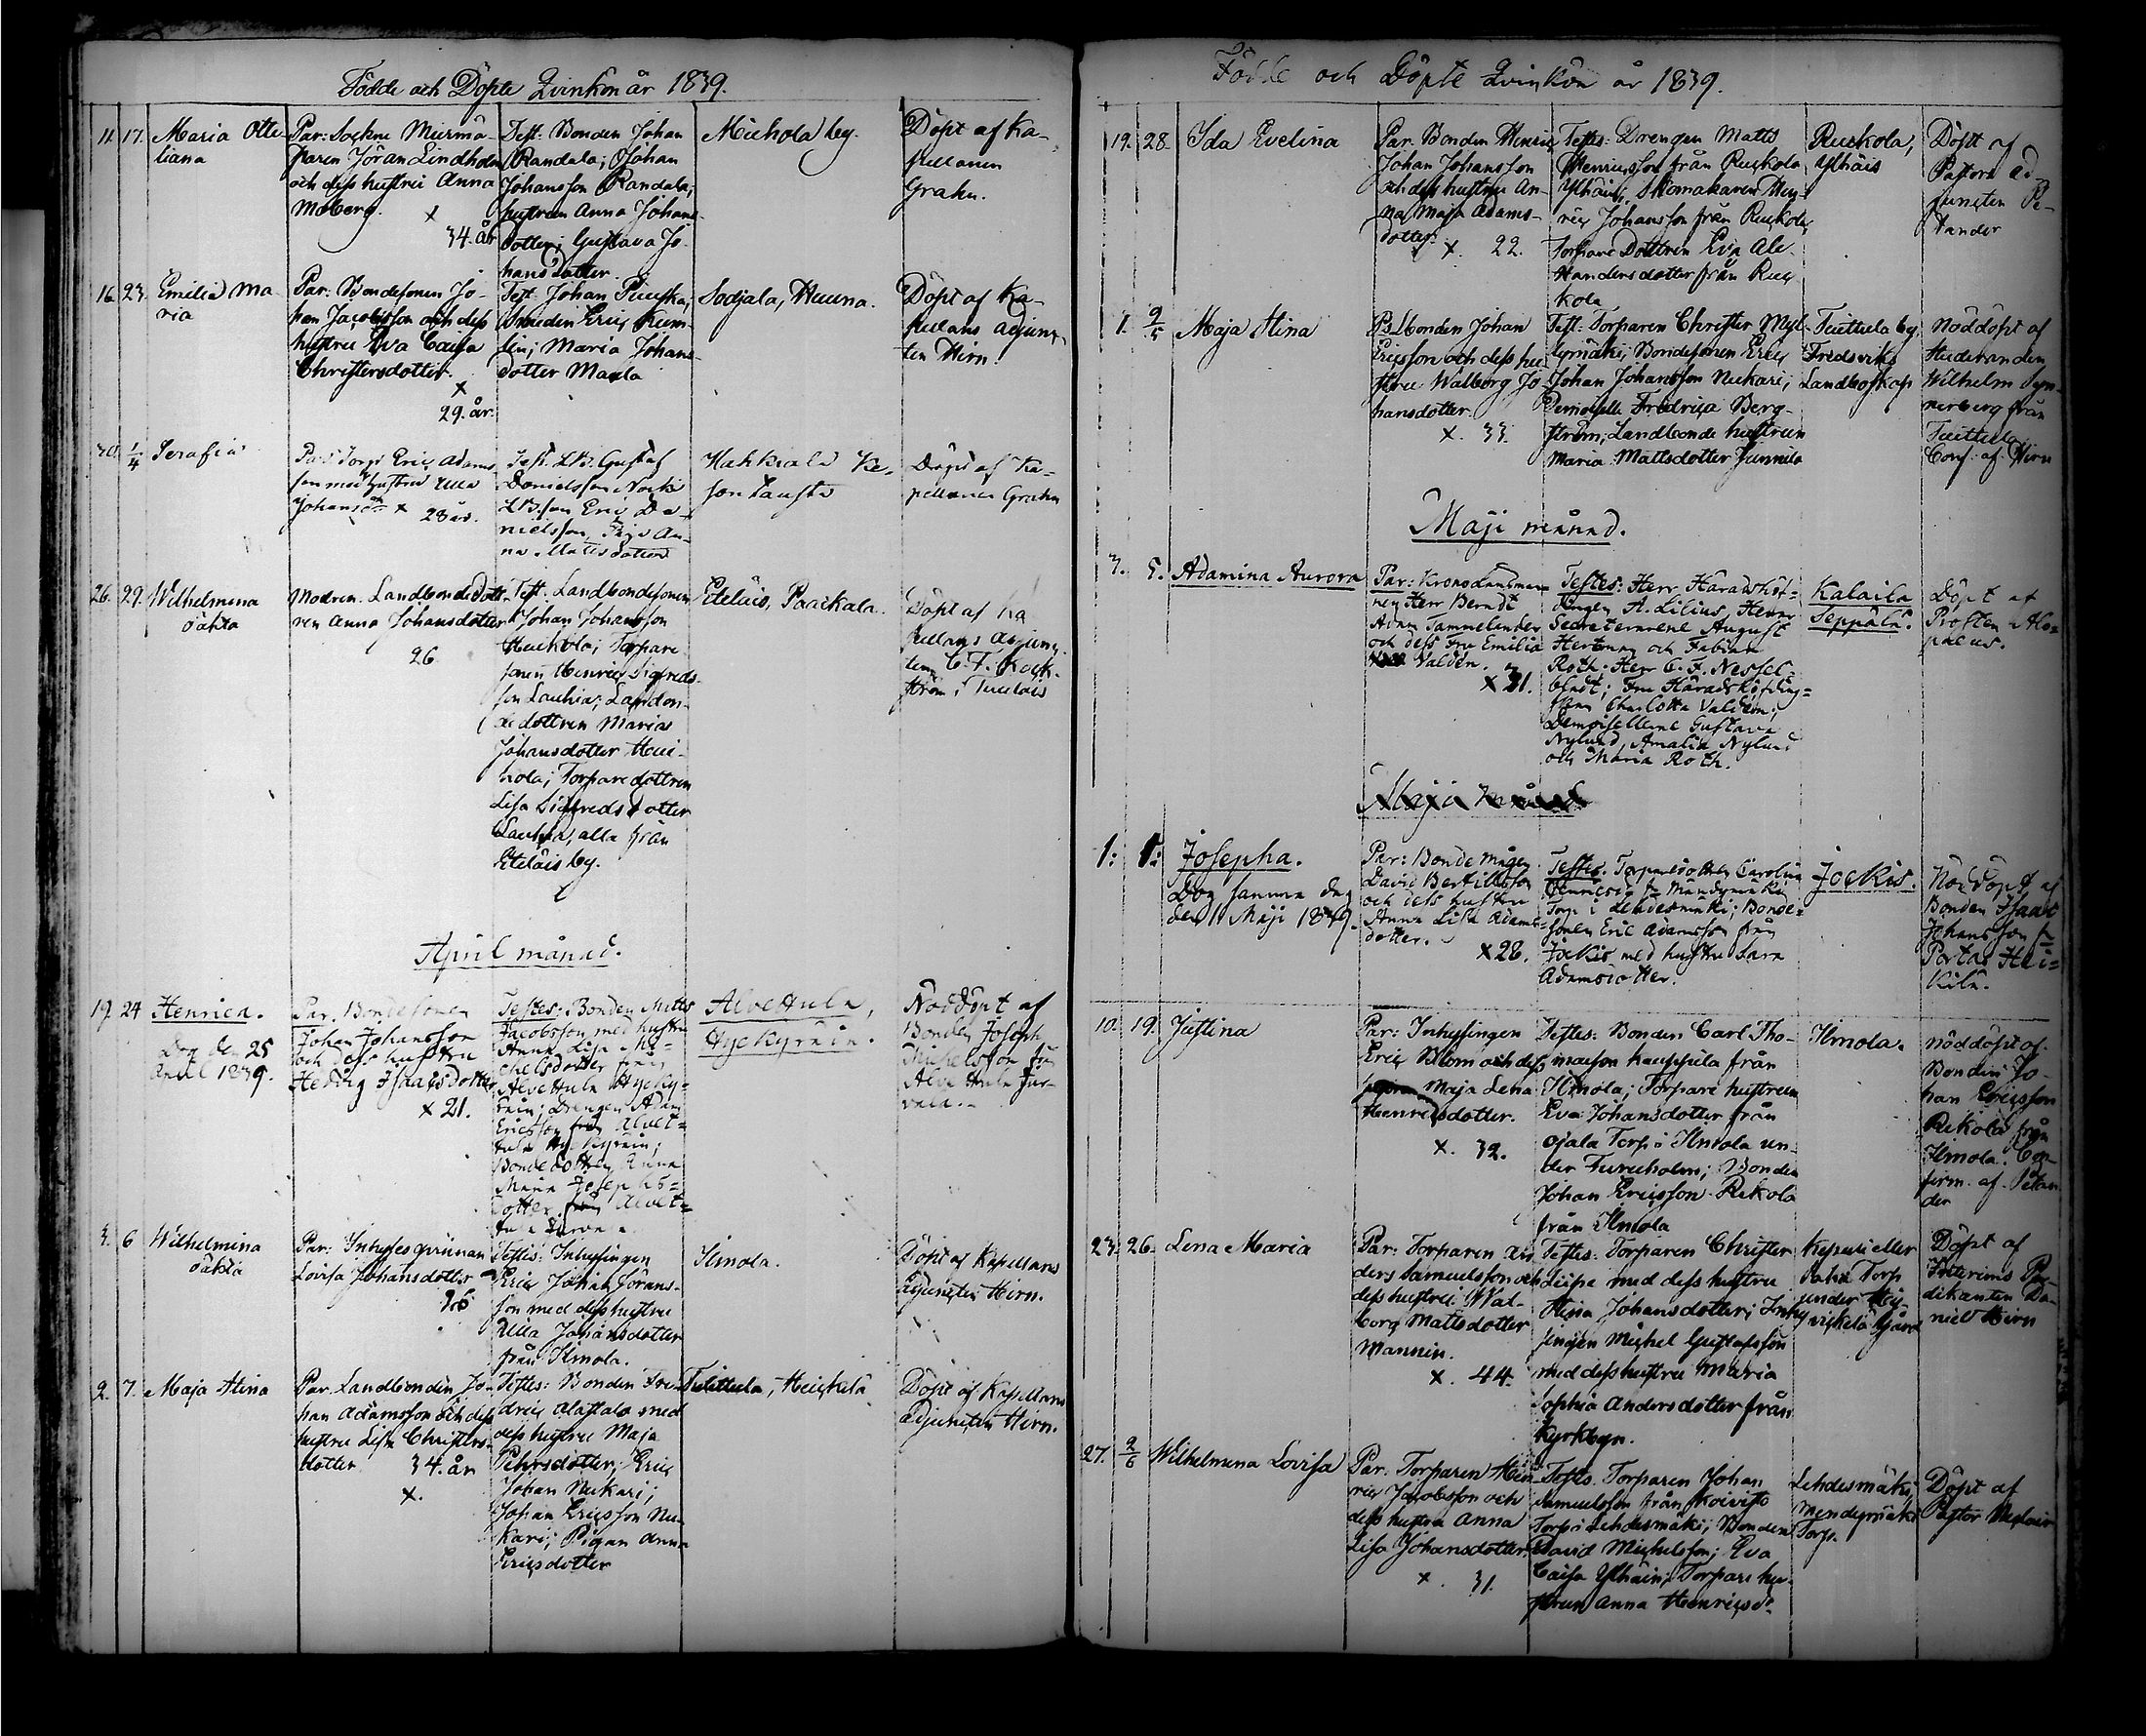 Födde och Döpte Qvinkön år 1839.
11. 17. Maria Otte-
liana
Par: Sockne Murmä-
Jöran Lindholm
och dess hustru Anna
Moberg. x
34. år
Test: Bonden Johan
Randala; Johan
Johansson Randala;
hustrun Anna Johans-
dotter; Gustava Jo-
hansdotter.
by.
Döpt af Ka-
pellanen
Grahn.
16. 23. Emilia Ma-
ria
Par: Bondesonen Jo-
han Jacobsson och dess
hustru Eva Caisa
Christersdotter.
x
29. år.
Test: Johan
Smeden Eric Kum-
lin; Maria Johans-
dotter
Sodjala,
Döpt af Ka-
pellans Adjunc-
ten Hirn.
30. 1/4 Serafia
Par: Torp: Eric Adams-
son med hustru Ulla
Johansdr x 28 år.
Test. Gustaf
Danielsson
Eric Da-
nielsson, An-
na Mattsdotter
Döpt af Ka-
pellanen Grahn
26. 29. Wilhelmina
oäkta
Modren. Landbondedott-
ren Anna Johansdotter
26
Test. Landbondesonen
Johan Johansson
Torpare
sonen Henric Sigfreds-
son Lauhia; Landbon-
dedottren Maria
Johansdotter
Torparedottren
Lisa Sigfredsdotter
Lauhia, alla från
Eteläis by.
Eteläis, Paaikala.
Döpt af Ka
pellans Adjunc-
ten C. F. Röck-
ström i
April månad.
19. 24 Henrica.
Dog den 25
April 1839.
Par. Bondesonen
Johan Johansson
och dess hustru
Hedvig Isaacsdotter
x 21.
Testes: Bonden Matts
Jacobsson med hustru
Anna Lisa Mi-
chelsdotter från
Alvettula Hycky-
rein; Drengen Adam
Ericsson från Alvet-
tula Hyckyrein;
Bondedottren Anna
Maria Josephs-
dotter från Alvet-
tula
Alvettula,
Nöddöpt af
Bonden Joseph
Michelsson från
Alvettula
3. 6 Wilhelmina
oäkta
Par: Inhyses qvinnan
Lovisa Johansdotter
Testes: Inhysingen
Eric Johan Görans-
son med dess hustru
Ulla Johansdotter
från Ilmola.
Ilmola.
Döpt af Kapellans
Adjuncten Hirn.
2. 7. Maja Stina
Par. Landbonden Jo-
han Adamsson och dess
hustru Lisa Christers-
dotter 34. år
x.
Testes: Bonden Fre-
dric Alastalo med
dess hustru Maja
Pehrsdotter; Eric
Johan Nukari;
Johan Ericsson Nu-
kari; Pigan Anna
Ericsdotter
Tuittula, Heickilä
Döpt af Kapellans
Adjuncten Hirn.
Födde och Döpte Qvinkön år 1839.
19. 28. Ida Evelina
Par. Bonden Henric
Johan Johansson
och dess hustru An-
na Maja Adams-
dotter.
x. 22.
Testes: Drengen Matts
Henricsson från Ruckola
Ylhäis; Skomakaren Hen-
ric Johansson från Ruckola
Torpare Dottren Eva Ale-
xandersdotter från Ruc-
kola
Ruckola,
Ylhäis
Döpt af
Pastors Ad-
juncten Pe-
tander
1. 9/5 Maja Stina
Bonden Johan
Ericsson och dess hu-
stru Walborg Jo-
hansdotter.
x. 33.
Test: Torparen Christer Myl-
lymäki; Bondesonen Eric
Johan Johansson Nukari;
Demoiselle Fredrica Berg-
ström; Landbonde hustrun
Maria Mattsdotter Junnila
Tuittula by
Fredsviks
Landboskap
Nöddöpt af
Studeranden
Wilhelm Sym-
nerberg från
Tuittula
Conf. af Hirn
Maji månad.
3. 5. Adamina Aurora
Par: Kronolänsman-
nen Herr Berndt
Adam Tammelander
och dess Fru Emilia
Valdén.
x 31.
Testes: Herr Häradshöf-
dingen A. Lilius, Herrar
Secreterarene August
Hertman och Fabian
Roth. Herr C. F. Nessel-
bladt; Fru Häradshöfding-
skan Charlotta Valdén;
Demoisellerne Gustava
Nylund, Amalia Nylund
och Maria Roth.
Kalaila
Seppälä.
Döpt af
Prosten Alo-
paeus.
Maji månad
1: 1: Josepha.
Dog samma dag
den 1 Maji 1839.
Par: Bonde mågen
David Bertillsson
och dess hustru
Anna Lisa Adams-
dotter.
x 28.
Testes. Torparedottren Carolina
Henricsdr fr
Torp i Lehdesmäki; Bonde-
sonen Eric Adamsson från
Jockis med hustru Sara
Adamsdotter.
Jockis.
Nöddöpt af
Bonden Isaac
Johansson fr
Portas Hei-
kilä.
10. 19. Justina
Par: Inhysingen
Eric Blom och dess
Maja Lena
Henricsdotter.
x. 32.
Testes: Bonden Carl Tho-
masson Kauppila från
Ilmola; Torpare hustrun
Eva Johansdotter från
Ojala Torp i Ilmola un-
der Turuholm; Bonden
Johan Ericsson Rekola
från Ilmola
Ilmola.
nöddöpt af
Bonden Jo-
han Ericsson
Rekola från
Ilmola. Con-
firm. af Petan
der
23. 26. Lena Maria
Par: Torparen An-
ders Samuelsson och
dess hustru Wal-
borg Mattsdotter
Mannin.
x. 44.
Testes: Torparen Christer
med dess hustru
Stina Johansdotter; Inhy
singen Michel Gustafsson
med dess hustru Maria
Sophia Andersdotter från
Kyrkbyn.
eller
Torp
under
Döpt af
Interims Pre-
dikanten Da-
niel Hirn
27. 2/6 Wilhelmina Lovisa
Par. Torparen Hen-
ric Jacobsson och
dess hustru Anna
Lisa Johansdotter.
x. 31.
Testes. Torparen Johan
Samuelsson från Koivisto
Torp i Lehdesmäki; Bonden
David Michelsson; Eva
Caisa Ylhäin; Torpare hu-
strun Anna Henricsdr
Lehdesmäki
Torp.
Döpt af
Pastor